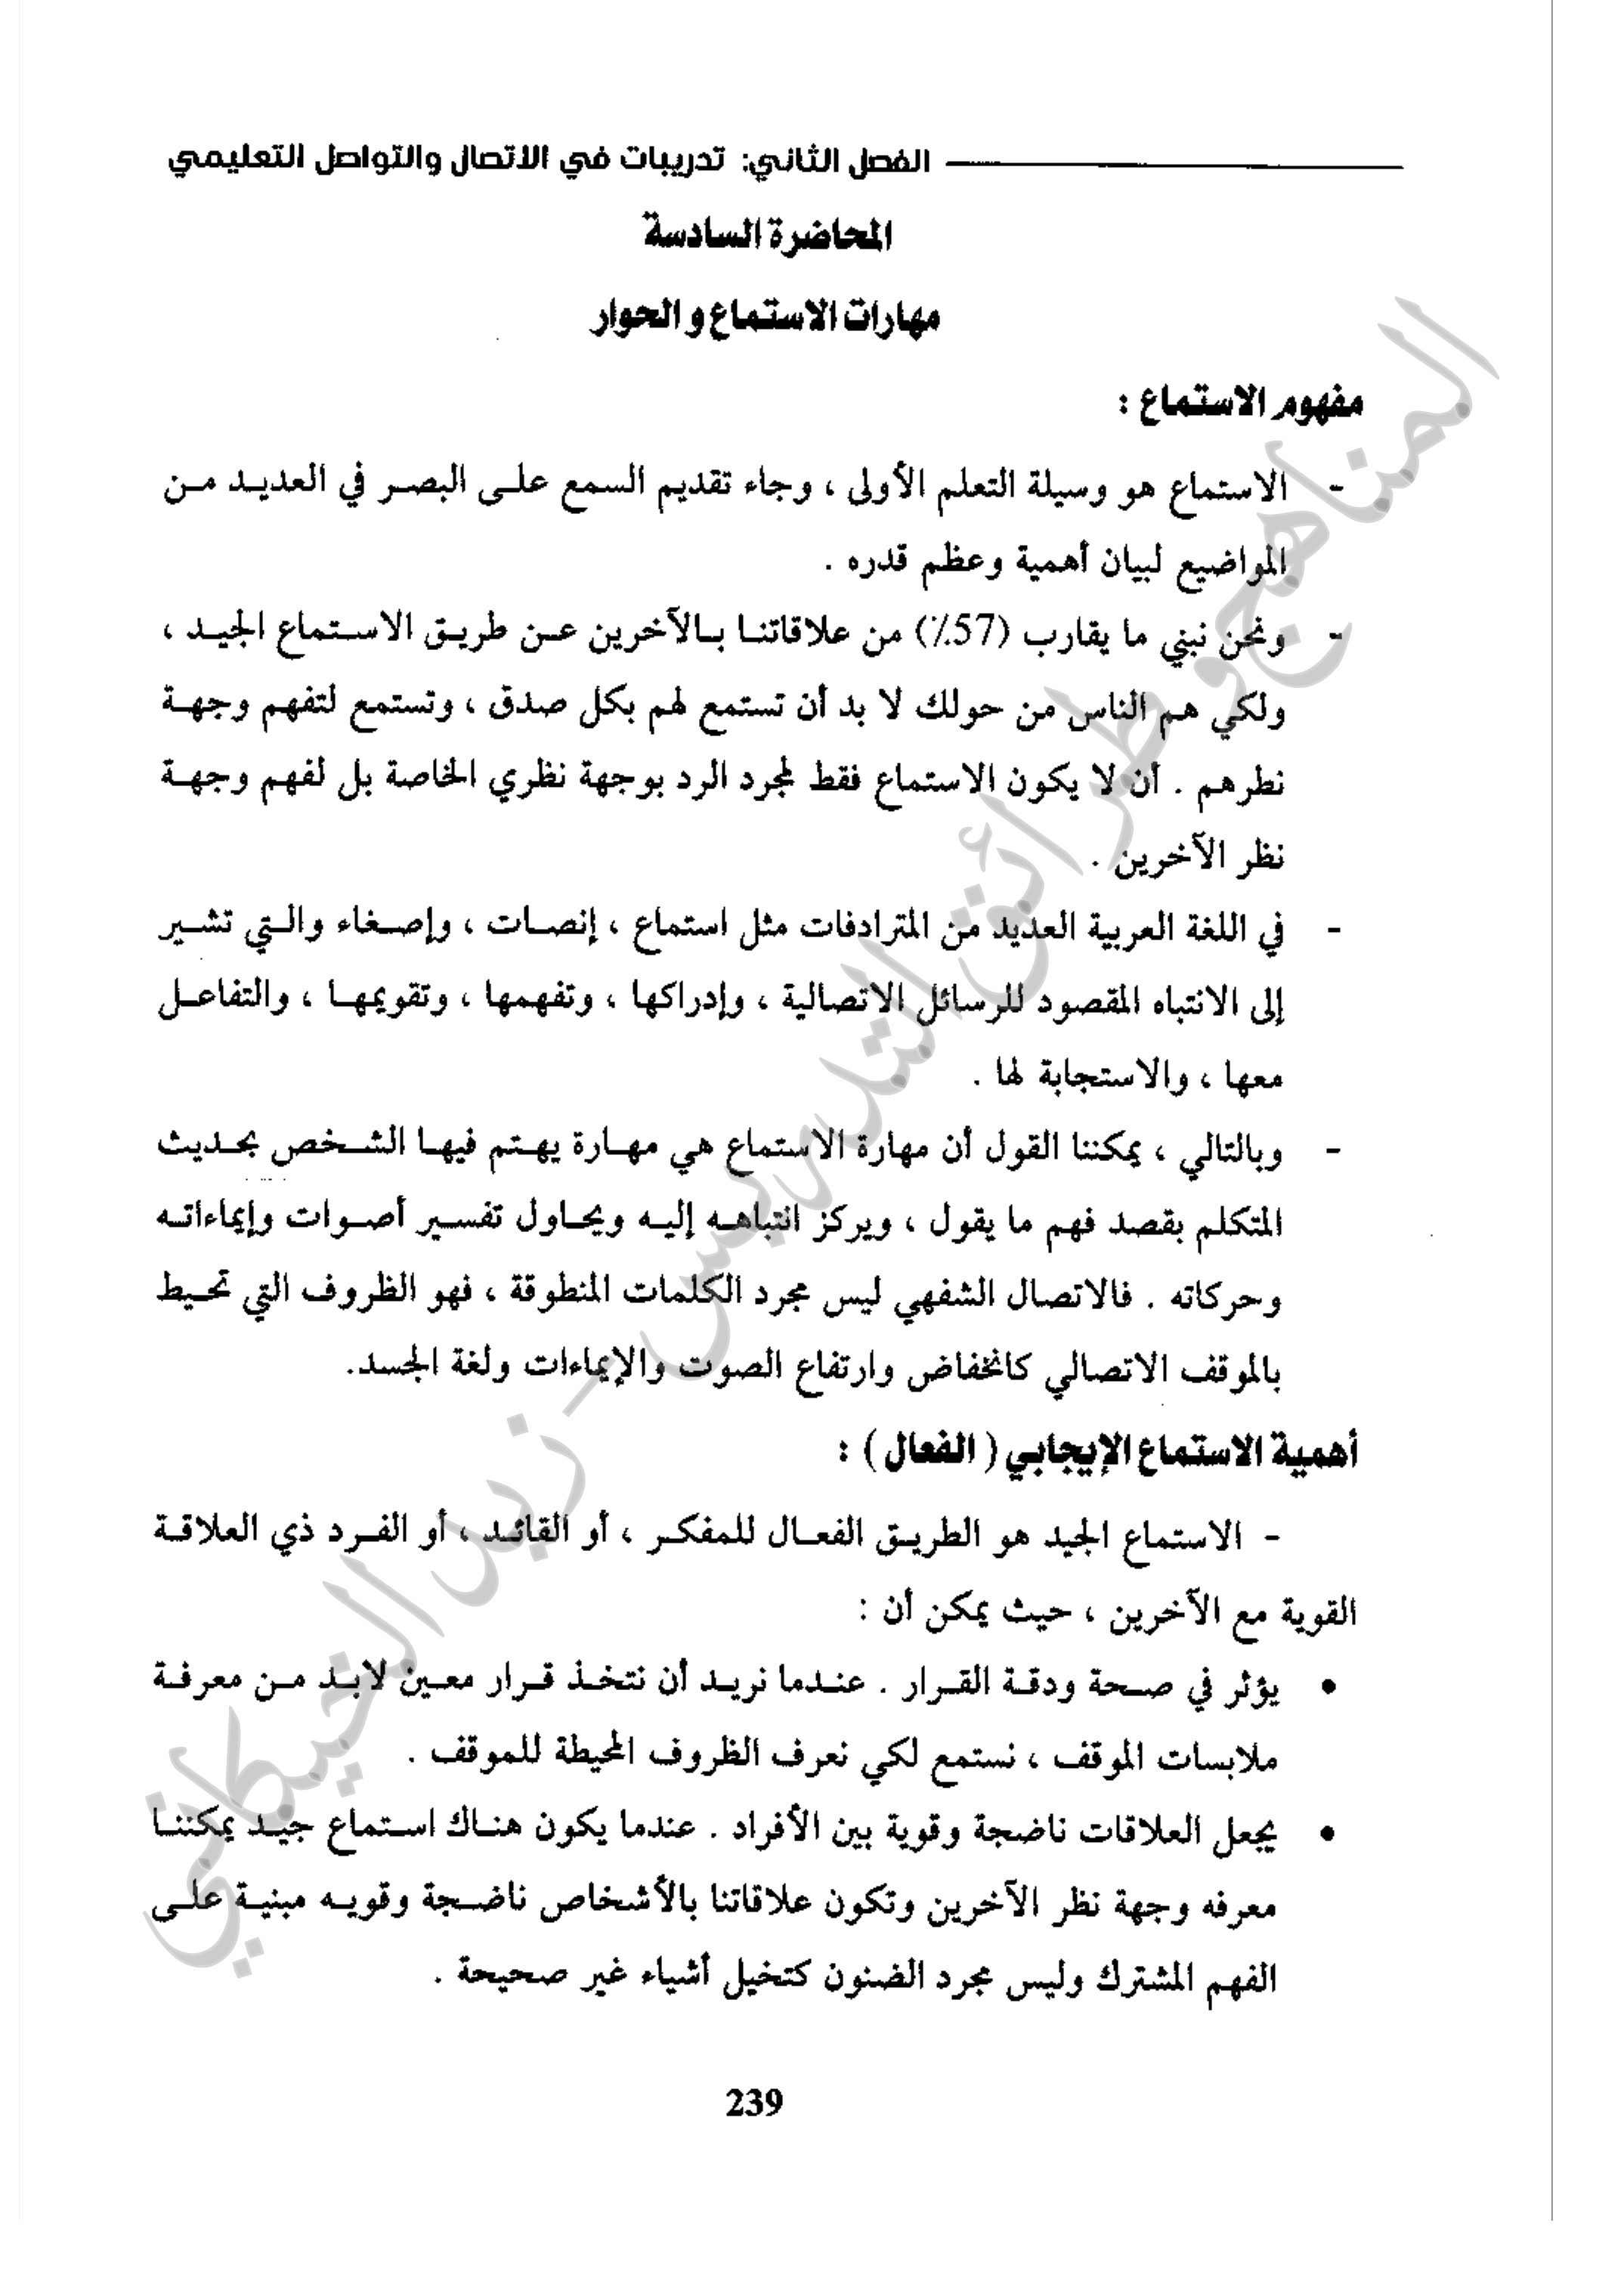 الفصل الثاني: تدريبات في الاتصال والتواصل التعليمي
المحاضرة السادسة
مهارات الاستماع و الحوار
مفهوم الاستماع :
- الاستماع هو وسيلة التعلم الأولى ، وجاء تقديم السمع على البصر في العديد من
المواضيع لبيان أهمية وعظم قدره .
- ونحن نبني ما يقارب (57٪) من علاقاتنا بالآخرين عن طريق الاستماع الجيد ،
ولكي هم الناس من حولك لا بد أن تستمع لهم بكل صدق ، وتستمع لتفهم وجهة
نطرهم . أن لا يكون الاستماع فقط لمجرد الرد بوجهة نظري الخاصة بل لفهم وجهة
نظر الآخرين .
- في اللغة العربية العديد من المترادفات مثل استماع ، إنصات ، وإصغاء والتي تشير
إلى الانتباه المقصود للرسائل الاتصالية ، وإدراكها ، وتفهمها ، وتقويمها ، والتفاعل
معها ، والاستجابة لها .
- وبالتالي ، يمكننا القول أن مهارة الاستماع هي مهارة يهتم فيها الشخص بحديث
المتكلم بقصد فهم ما يقول ، ويركز انتباهه إليه ويحاول تفسير أصوات وإيماءاته
وحركاته . فالاتصال الشفهي ليس مجرد الكلمات المنطوقة ، فهو الظروف التي تحيط
بالموقف الاتصالي كانخفاض وارتفاع الصوت والإيماءات ولغة الجسد.
أهمية الاستماع الإيجابي ( الفعال ) :
- الاستماع الجيد هو الطريق الفعال للمفكر ، أو القائد ، أو الفرد ذي العلاقة
القوية مع الآخرين ، حيث يمكن أن :
• يؤثر في صحة ودقة القرار . عندما نريد أن نتخذ قرار معين لابد من معرفة
ملابسات الموقف ، نستمع لكي نعرف الظروف المحيطة للموقف .
• يجعل العلاقات ناضجة وقوية بين الأفراد . عندما يكون هناك استماع جيد يمكننا
معرفه وجهة نظر الآخرين وتكون علاقاتنا بالأشخاص ناضجة وقويه مبنية على
الفهم المشترك وليس مجرد الضنون كتخيل أشياء غير صحيحة .
239
المناهج وطرائق التدريس - زيد الخيكاني